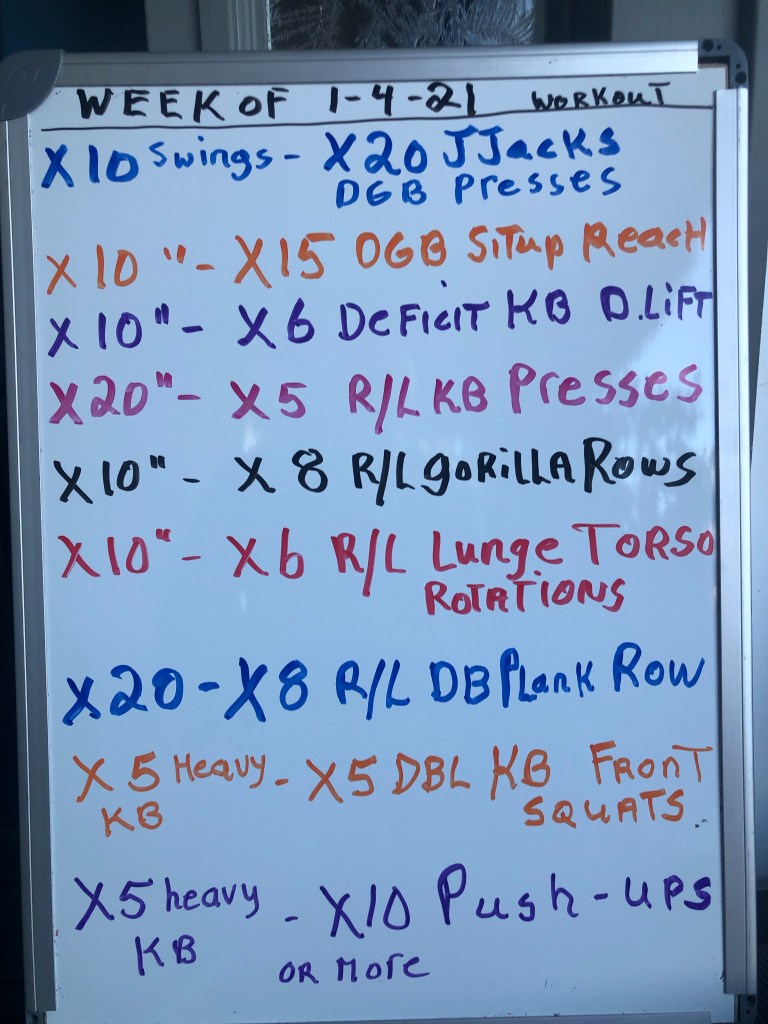 WEEK OF 1-4-21 WORKOUT
X10 Swings - X20 JJacks
DGB Presses
X10 " - X15 DGB Situp Reach
X10 " - X6 Deficit KB D.Lift
X20 " - X5 R/L KB Presses
X10 " - X 8 R/L gorilla Rows
X10 " - X6 R/L Lunge Torso
Rotations
X20 - X8 R/L DB Plank Row
X5 Heavy - X5 DBL KB Front
KB Squats
X5 heavy - X10 Push-ups
KB or more